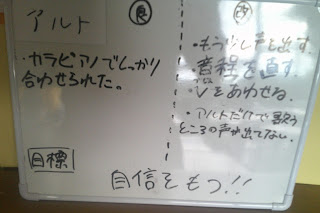 アルト
良
・カラピアノでしっかり
合わせられた。
改
・もう少し声を出す。
・音程を直す。
・Vをあわせる。
・アルトだけで歌う
ところの声が出てない。
目標
自信をもつ!!